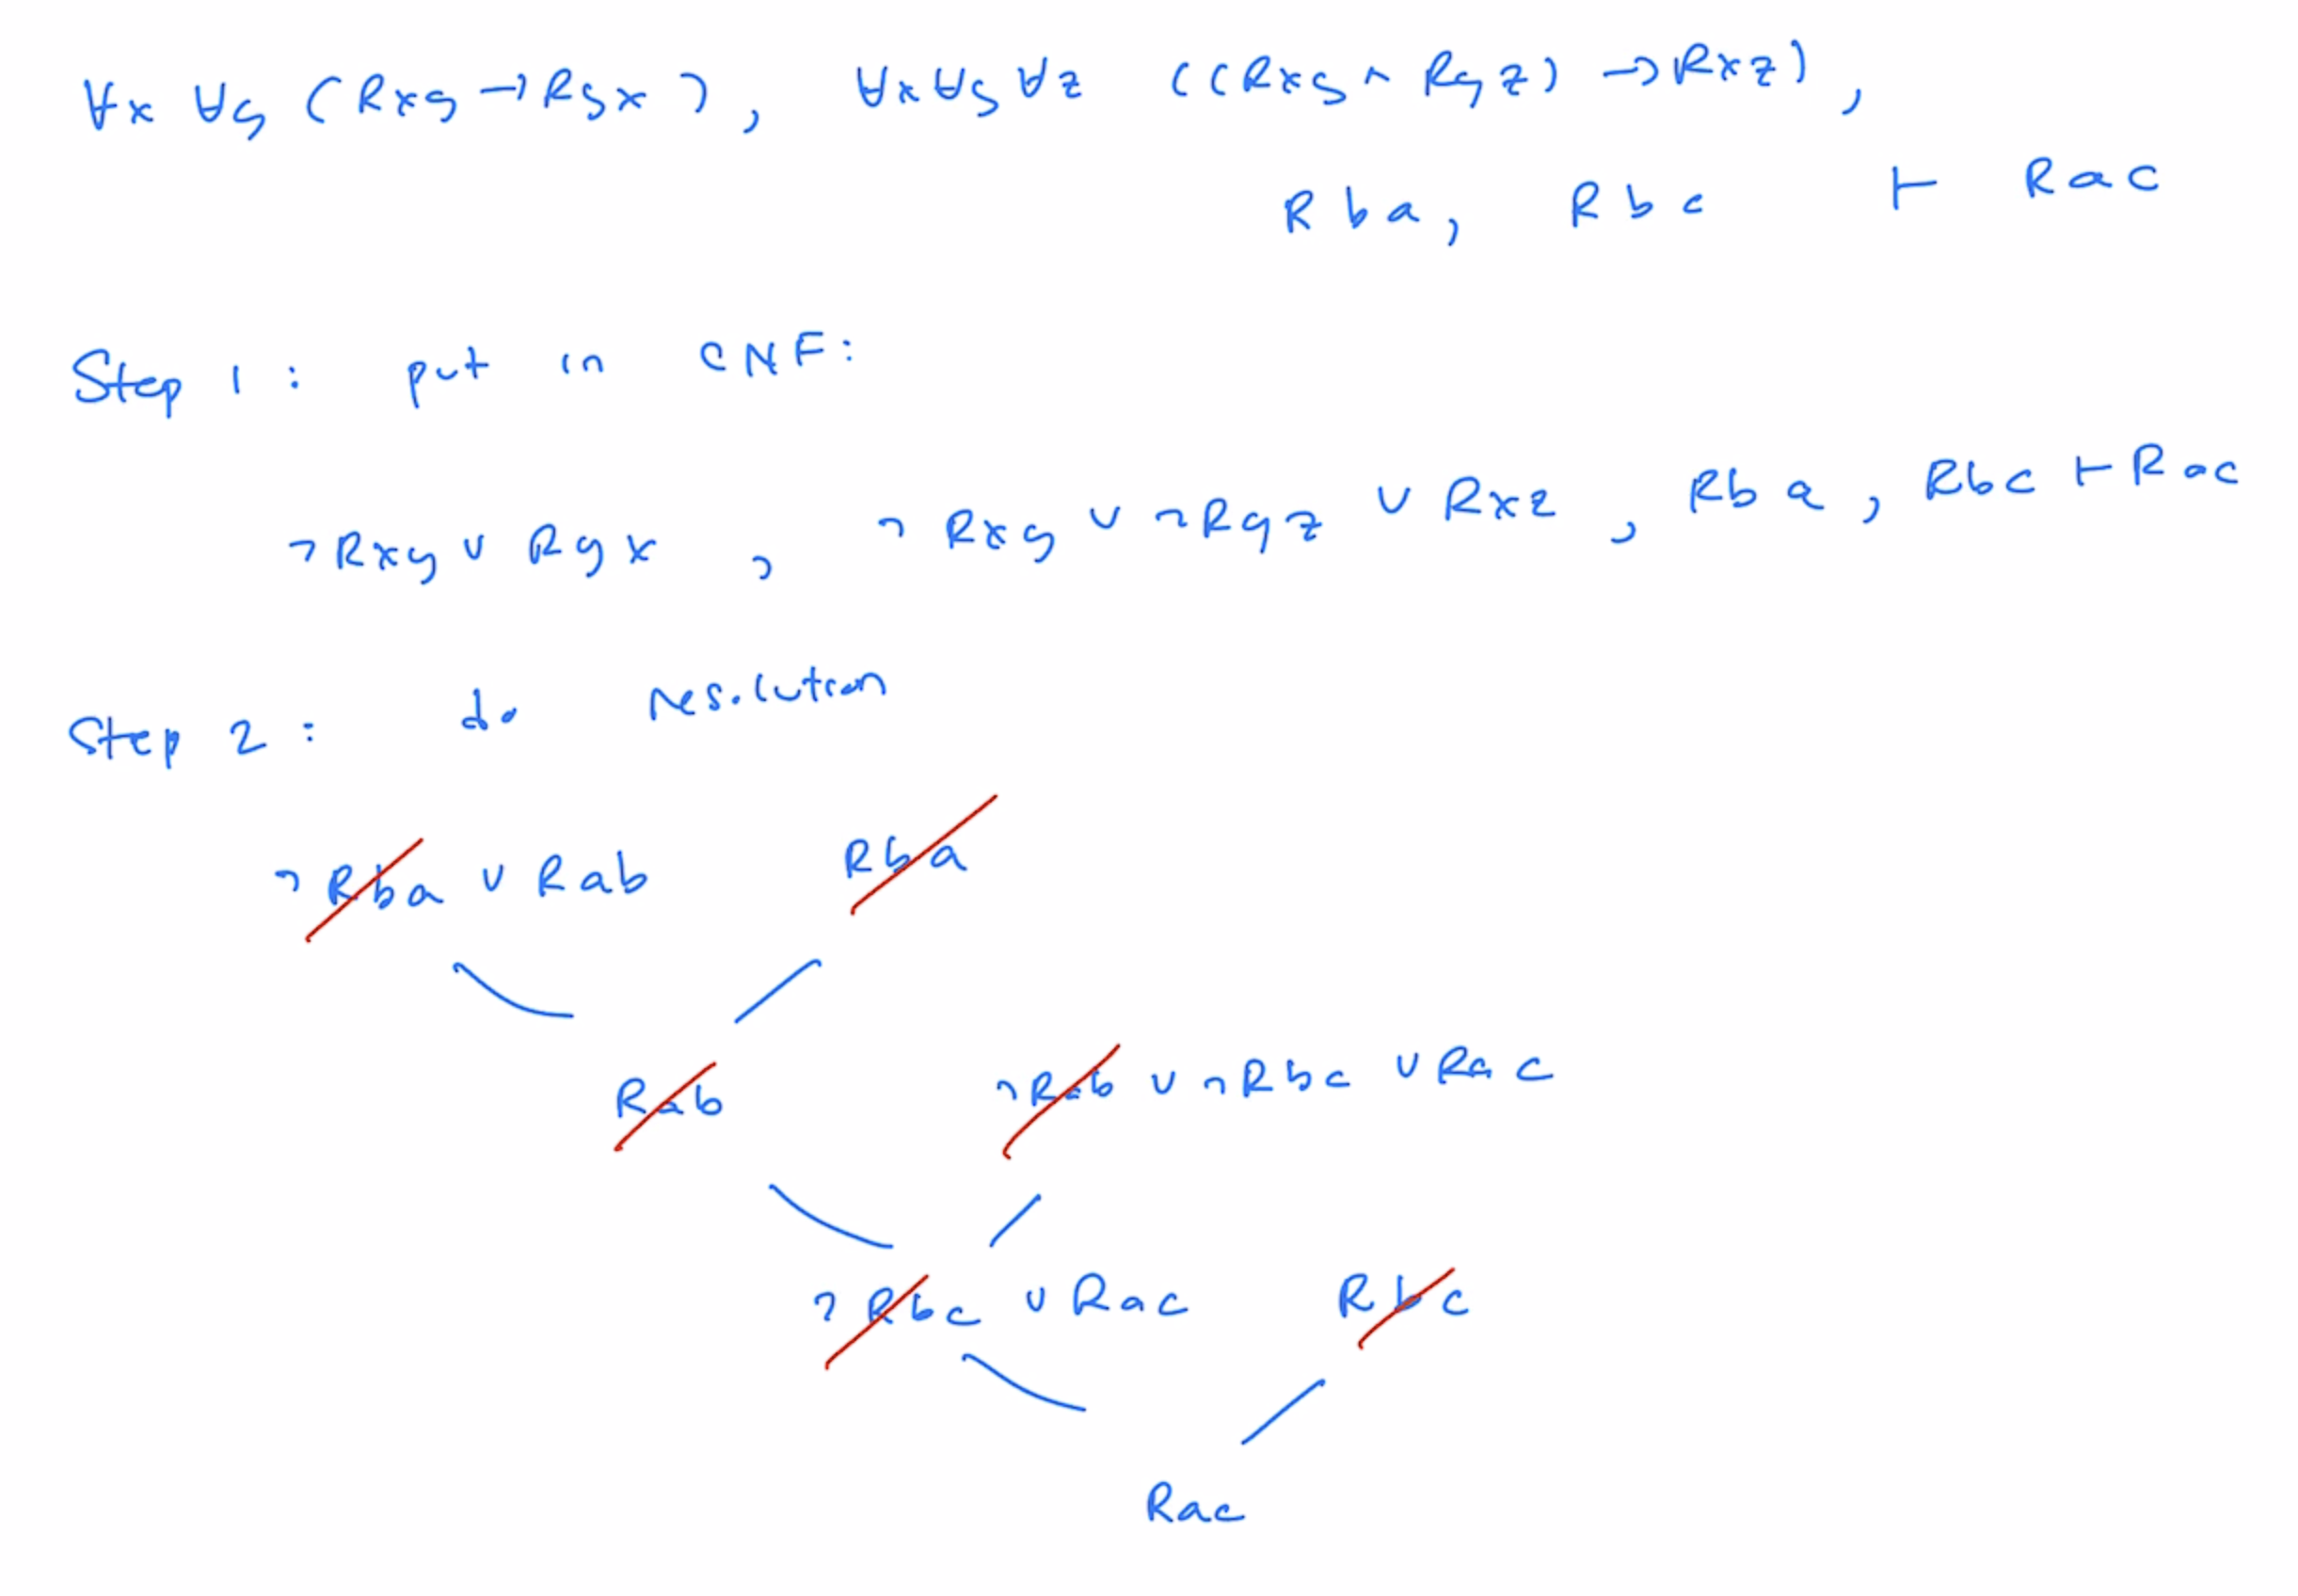 ∀x ∀y (Rxy → Ryx), ∀x∀y∀z ((Rxy ∧ Ryz) → Rxz),
Rba, Rbc ⊢ Rac
Step 1: put in CNF:
¬Rxy ∨ Ryx, ¬Rxy ∨ ¬Ryz ∨ Rxz, Rba, Rbc ⊢ Rac
Step 2: do resolution
¬Rba ∨ Rab Rba
Rab ¬Rab ∨ ¬Rbc ∨ Rac
¬Rbc ∨ Rac Rbc
Rac